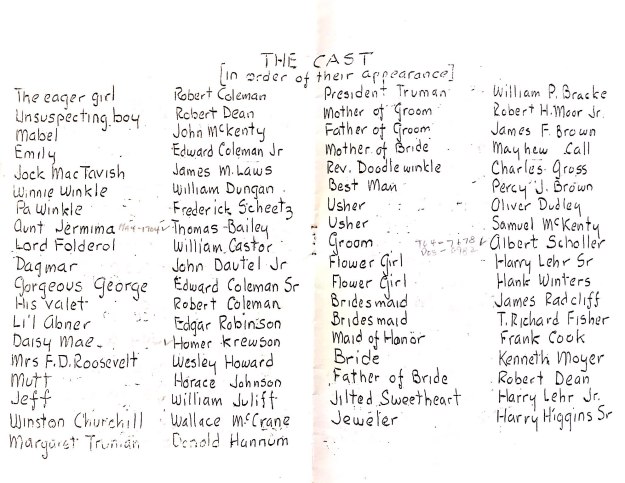 THE CAST
[in order of their appearance]
The eager girl Robert Coleman
Unsuspecting boy Robert Dean
Mabel John McKenty
Emily Edward Coleman Jr
Jock MacTavish James M. Laws
Winnie Winkle William Dungan
Pa Winkle Frederick Scheetz
Aunt Jermima Thomas Bailey
Lord Folderol William Castor
Dagmar John Dautel Jr
Gorgeous George Edward Coleman Sr
His valet Robert Coleman
Li'l Abner Edgar Robinson
Daisy Mae Homer Krewson
Mrs F.D. Roosevelt Wesley Howard
Mutt Horace Johnson
Jeff William Juliff
Winston Churchill Wallace McCrane
Margaret Truman Donald Hannum
President Truman William P. Bracke
Mother of Groom Robert H. Moor Jr.
Father of Groom James F. Brown
Mother of Bride Mayhew Call
Rev. Doodlewinkle Charles Gross
Best Man Percy J. Brown
Usher Oliver Dudley
Usher Samuel McKenty
Groom Albert Scholler
Flower Girl Harry Lehr Sr
Flower Girl Hank Winters
Bridesmaid James Radcliff
Bridesmaid T. Richard Fisher
Maid of Honor Frank Cook
Bride Kenneth Moyer
Father of Bride Robert Dean
Jilted Sweetheart Harry Lehr Jr.
Jeweler Harry Higgins Sr